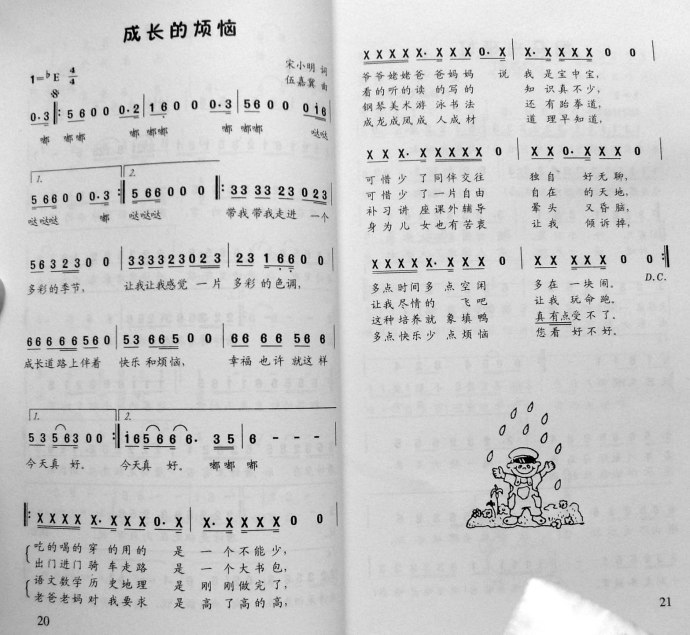 成长的烦恼
1=♭E 4/4
宋小明 词
伍嘉冀 曲
0·3 ‖: 5 6 0 0 0·2 | 1 6 0 0 0·3 | 5 6 0 0 0 1 6
嘟 嘟嘟 嘟 嘟嘟 嘟 嘟嘟 哒哒
1. 2.
5 6 6 0 0 0·3 :‖ 5 6 6 0 0 0 ‖: 3 3 3 3 2 3 0 2 3
哒哒哒 嘟 哒哒哒 带我带我走进 一个
5 6 3 2 3 0 0 | 3 3 3 3 3 2 3 0 2 3 | 2 3 1 6 6 0 0
多彩的季节, 让我让我感觉 一片 多彩的色调,
6 6 6 6 6 5 6 0 | 6 6 6 6 5 6 0 | 6 6 6 6 5 6 5 6
成长道路上伴着 快乐和烦恼, 幸福 也许 就这样
1. 2.
5 3 5 6 3 0 0 :‖ 1 6 5 6 6 6· 3 5 | 6 - - -
今天真 好. 今天真 好. 嘟嘟 嘟
‖: X X X X X· X X X 0· X | X· X X X X 0 0
吃的喝的穿 的用的 是 一 个不能少,
出门进门骑 车走路 是 一 个大书包,
语文数学历 史地理 是 刚 刚做完了,
老爸老妈对 我要求 是 高 了高的高,
20
X X X X X· X X X 0· X | X· X X X X 0 0
爷爷姥姥爸 爸妈妈 说 我 是宝中宝,
看的听的读 的写的 知 识真不少,
钢琴美术游 泳书法 还 有跆拳道,
成龙成凤成 人成材 道 理早知道,
X X X· X X X X X | X X 0· X X X 0
可惜少 了同伴交往 独自 好无聊,
可惜少 了一片自由 自在 的天地,
补习讲 座课外辅导 晕头 又昏脑,
身为儿 女也有苦衷 让我 倾诉掉,
X X X X X· X X X | X X X· X X 0 0 :‖
D.C.
多点时间多 点空闲 多在 一块闹。
让我尽情的 飞吧 让我 玩命跑。
这种培养就 象填鸭 真有点受不了。
多点快乐少 点烦恼 您看 好不好。
21